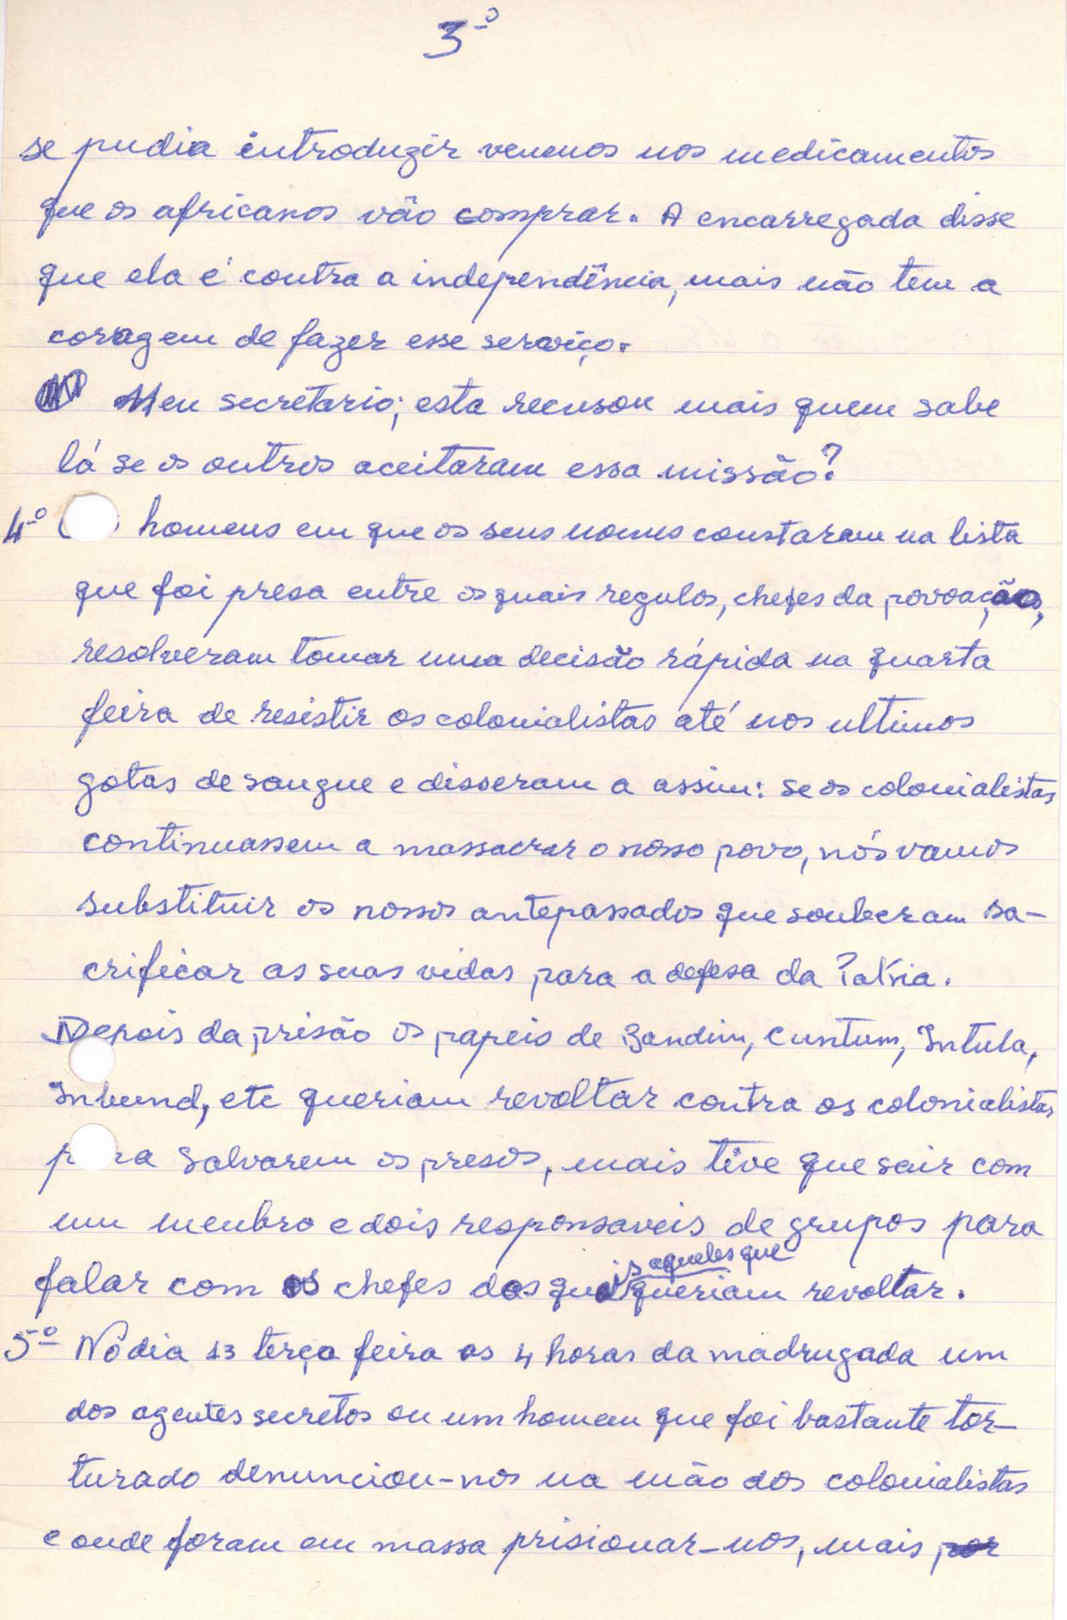 3º
se pudia introduzir venenos nos medicamentos
que os africanos vão comprar. A encarregada disse
que ela é contra a independência, mais não tem a
coragem de fazer esse serviço.
Meu secretario; esta recusou mais quem sabe
lá se os outros aceitaram essa missão?
4º homens em que os seus nomes constaram na lista
que foi presa entre os quais regulos, chefes da povoação,
resolveram tomar uma decisão rápida na quarta
feira de resistir os colonialistas até nos ultimos
gotas de sangue e disseram a assim: se os colonialistas
continuassem a massacrar o nosso povo, nós vamos
substituir os nossos antepassados que souberam sa-
crificar as suas vidas para a defesa da Patria.
Depois da prisão os papeis de Bandim, Cuntum, Intula,
Inbund, etc queriam revoltar contra os colonialistas
para salvarem os presos, mais tive que sair com
um membro e dois responsaveis de grupos para
falar com os chefes dos quais aqueles que queriam revoltar.
5º No dia 13 terça feira as 4 horas da madrugada um
dos agentes secretos ou um homem que foi bastante tor-
turado denunciou-nos na mão dos colonialistas
e onde foram em massa prisionar-nos, mais por